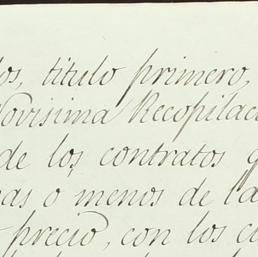 los, titulo primero,
Novisima Recopilac
de los contratos q
mas ò menos de la
precio, con los